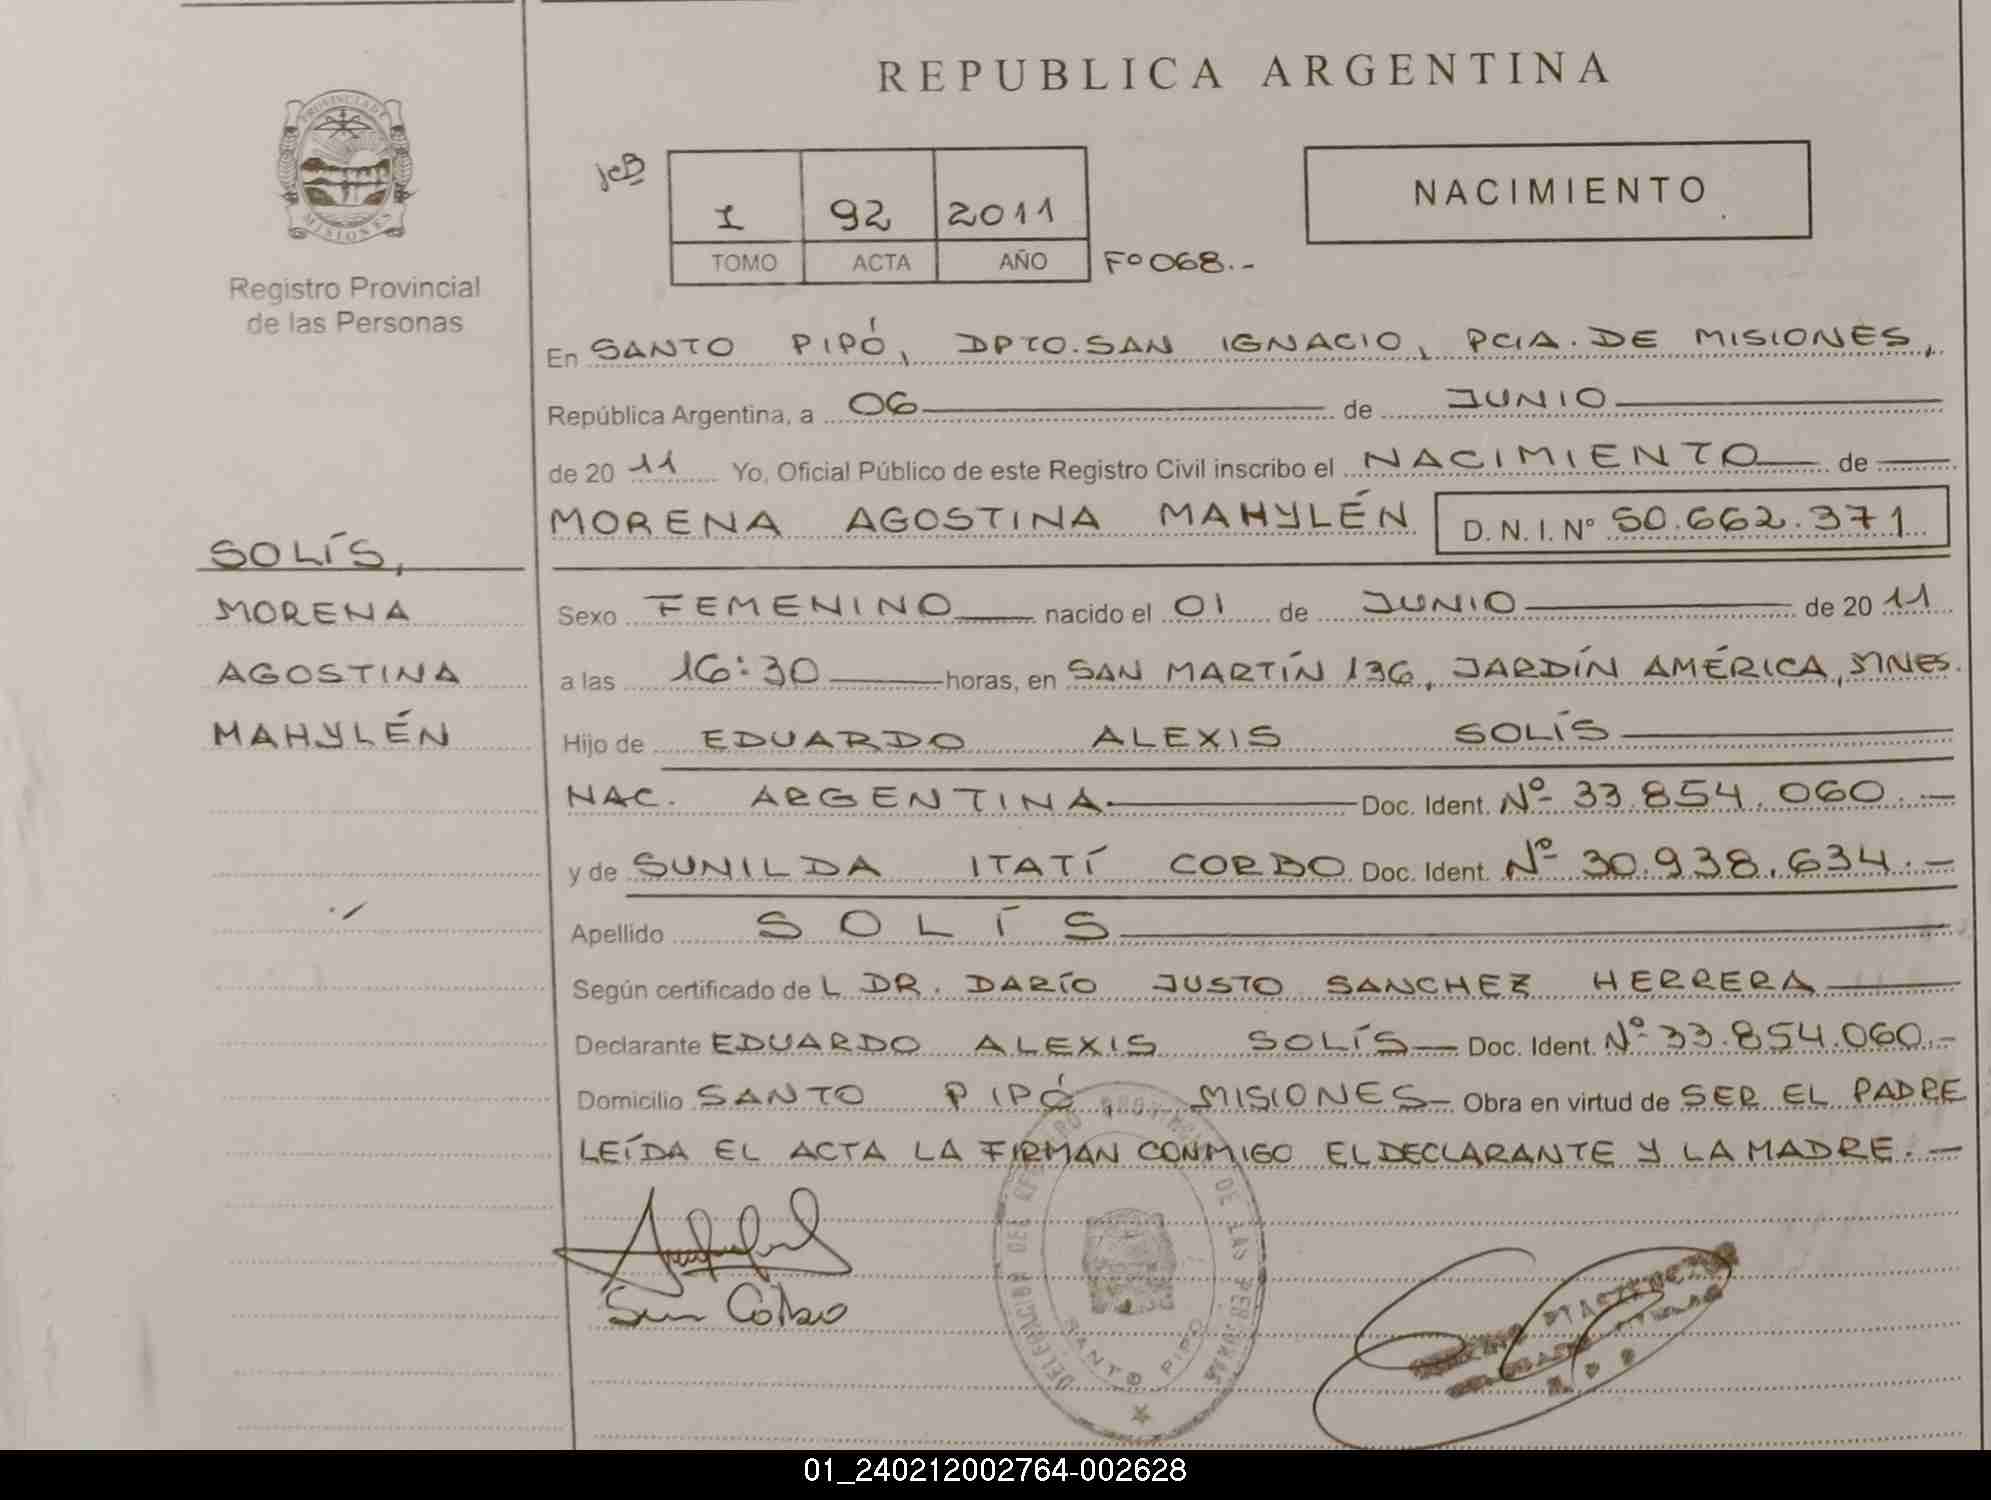 REPUBLICA ARGENTINA
PROVINCIA DE
MISIONES
Registro Provincial
de las Personas
JCB
1 92 2011
TOMO ACTA AÑO Fº 068.-
NACIMIENTO
En SANTO PIPÓ, DPTO. SAN IGNACIO, PCIA. DE MISIONES,
República Argentina, a 06 de JUNIO
de 20 11 Yo, Oficial Público de este Registro Civil inscribo el NACIMIENTO de
MORENA AGOSTINA MAHYLÉN D. N. I. Nº 50.662.371
SOLÍS,
MORENA
AGOSTINA
MAHYLÉN
Sexo FEMENINO nacido el 01 de JUNIO de 20 11
a las 16:30 horas, en SAN MARTÍN 136, JARDÍN AMÉRICA, MNES.
Hijo de EDUARDO ALEXIS SOLÍS
NAC. ARGENTINA Doc. Ident. Nº 33.854.060.-
y de SUNILDA ITATÍ CORBO Doc. Ident. Nº 30.938.634.-
Apellido SOLÍS
Según certificado de L DR. DARÍO JUSTO SANCHEZ HERRERA
Declarante EDUARDO ALEXIS SOLÍS Doc. Ident. Nº 33.854.060.-
Domicilio SANTO PIPÓ, MISIONES Obra en virtud de SER EL PADRE
LEÍDA EL ACTA LA FIRMAN CONMIGO EL DECLARANTE Y LA MADRE.-
DELEGACION DEL REGISTRO PROVINCIAL DE LAS PERSONAS
SANTO PIPO
01_240212002764-002628